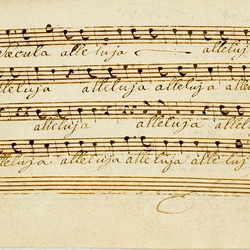 saecula alleluja alleluj
lleluja alleluja alleluja allelu
alleluja alleluja allel
lleluja alleluja alleluja alleluj